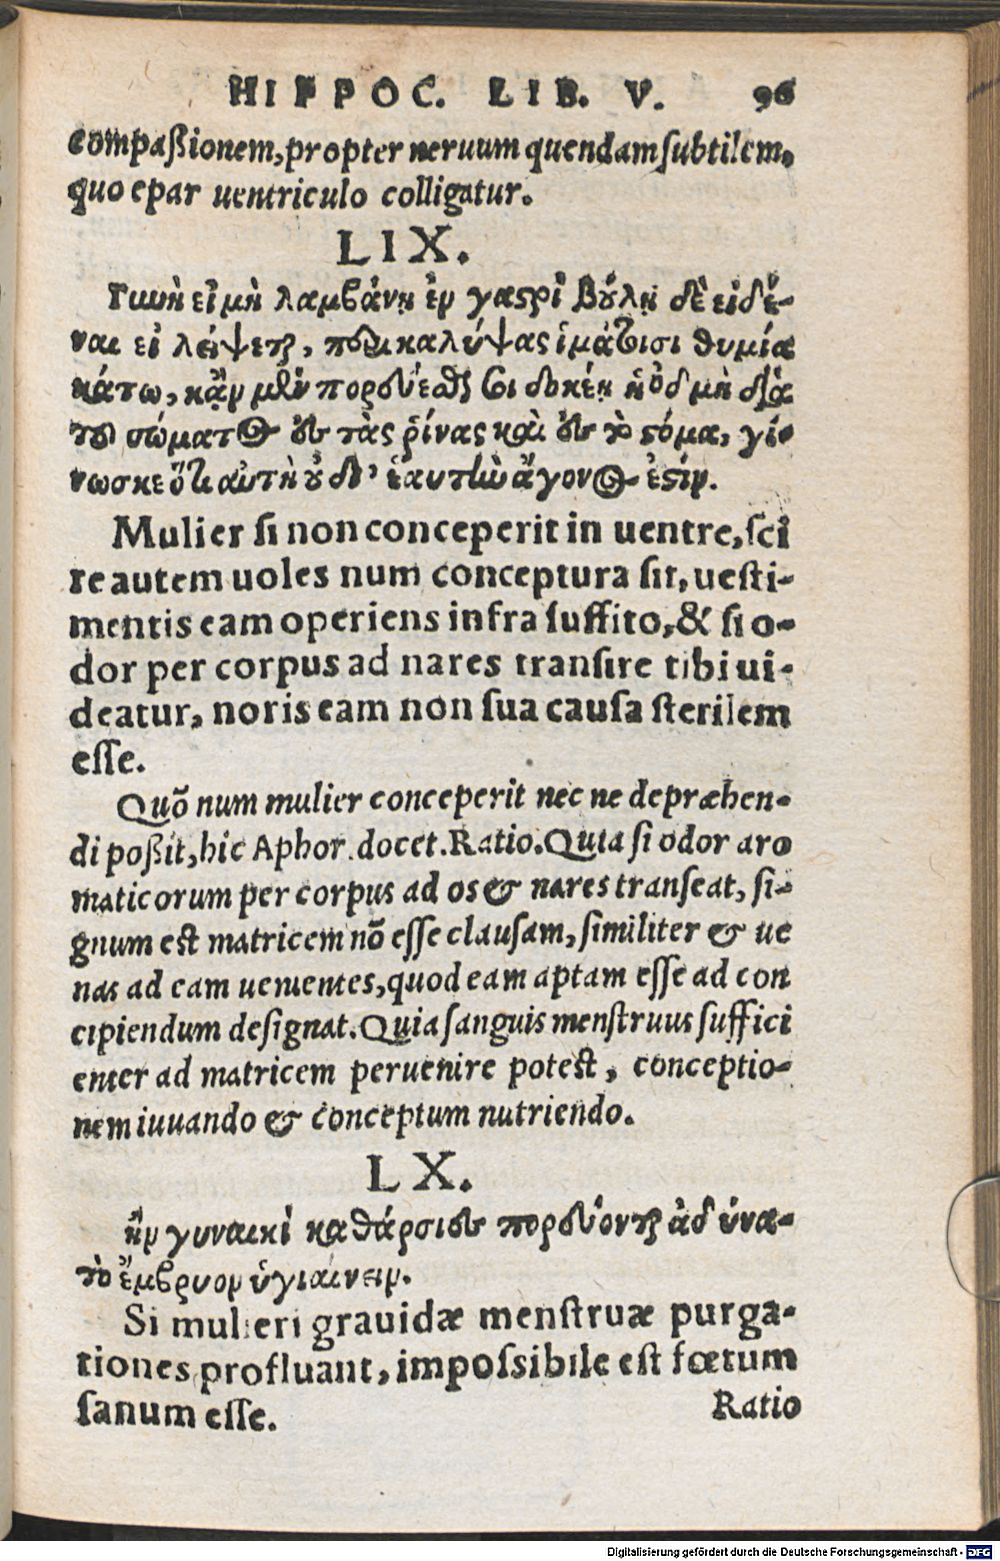 HIPPOC. LIB. V. 96
compaßionem, propter neruum quendam subtilem,
quo epar uentriculo colligatur.
LIX.
Γυνὴ εἰ μὴ λαμβάνῃ ἐν γαστρὶ βούλῃ δὲ εἰδέ-
ναι εἰ λήψεται, περικαλύψας ἱματίοισι θυμία
κάτω, κἂν μὲν πορεύεσθαι σοι δοκέῃ ἡ ὀδμὴ διὰ
τοῦ σώματος ἐς τὰς ῥίνας καὶ ἐς τὸ στόμα, γί-
νωσκε ὅτι αὐτὴ οὐ δι' ἑαυτὴν ἄγονος ἐστίν.
Mulier si non conceperit in uentre, sci
re autem uoles num conceptura sit, uesti-
mentis eam operiens infra suffito, & si o-
dor per corpus ad nares transire tibi ui-
deatur, noris eam non sua causa sterilem
esse.
Quō num mulier conceperit nec ne depræhen-
di poßit, hic Aphor. docet. Ratio. Quia si odor aro
maticorum per corpus ad os & nares transeat, si-
gnum est matricem nō esse clausam, similiter & ue
nas ad eam uenientes, quod eam aptam esse ad con
cipiendum designat. Quia sanguis menstruus suffici
enter ad matricem peruenire potest, conceptio-
nem iuuando & conceptum nutriendo.
LX.
ἢν γυναικὶ καθάρσιες πορεύονται ἀδύνα-
τὸ ἔμβρυον ὑγιαίνειν.
Si mulieri grauidæ menstruæ purga-
tiones profluant, impossibile est fœtum
sanum esse. Ratio
Digitalisierung gefördert durch die Deutsche Forschungsgemeinschaft - DFG